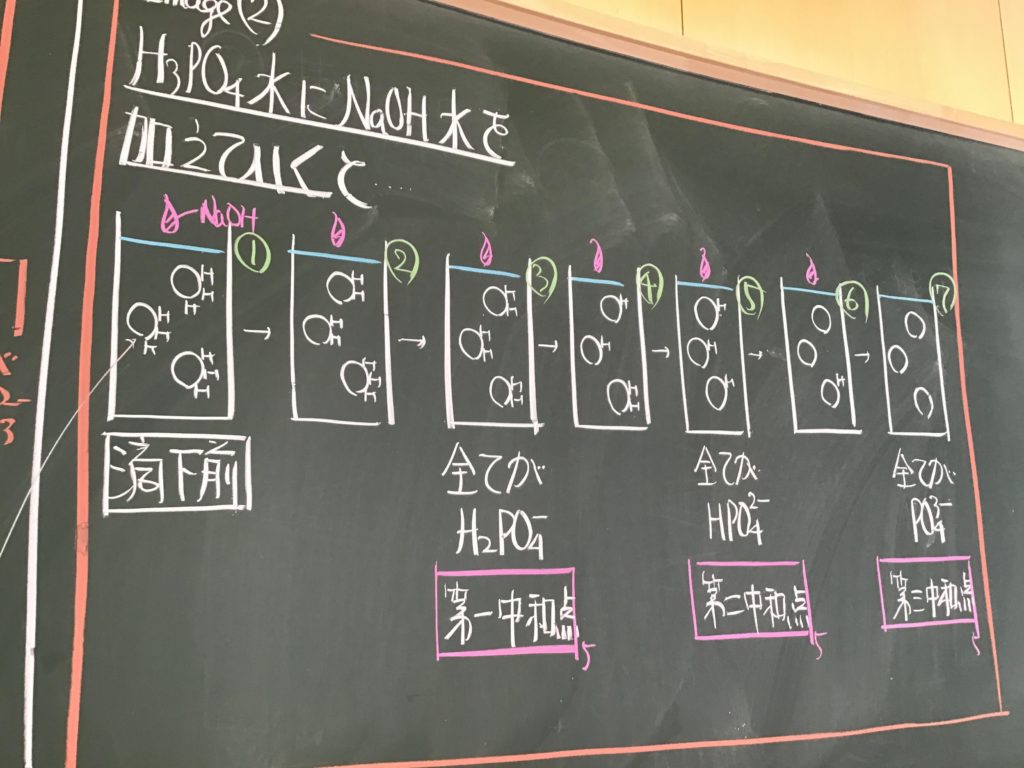 Image(2)
H₃PO₄水にNaOH水を
加えていくと……
NaOH
① ② ③ ④ ⑤ ⑥ ⑦
→ → → → → →
滴下前
全てが
H₂PO₄⁻
第一中和点
全てが
HPO₄²⁻
第二中和点
全てが
PO₄³⁻
第三中和点